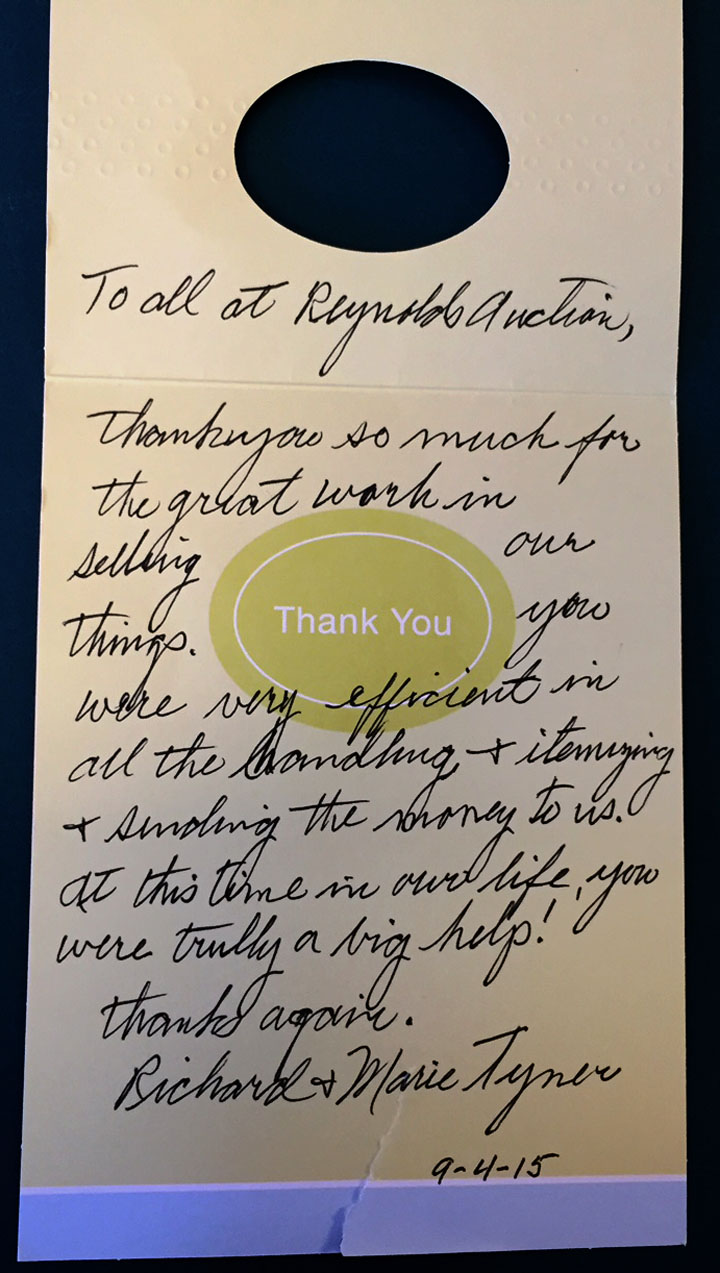 To all at Reynolds Auction,
Thankyou so much for
the great work in
selling our
things. you
Thank You
were very efficient in
all the handling + itemizing
+ sending the money to us.
At this time in our life, you
were trully a big help!
Thanks again.
Richard + Marie Tyner
9-4-15